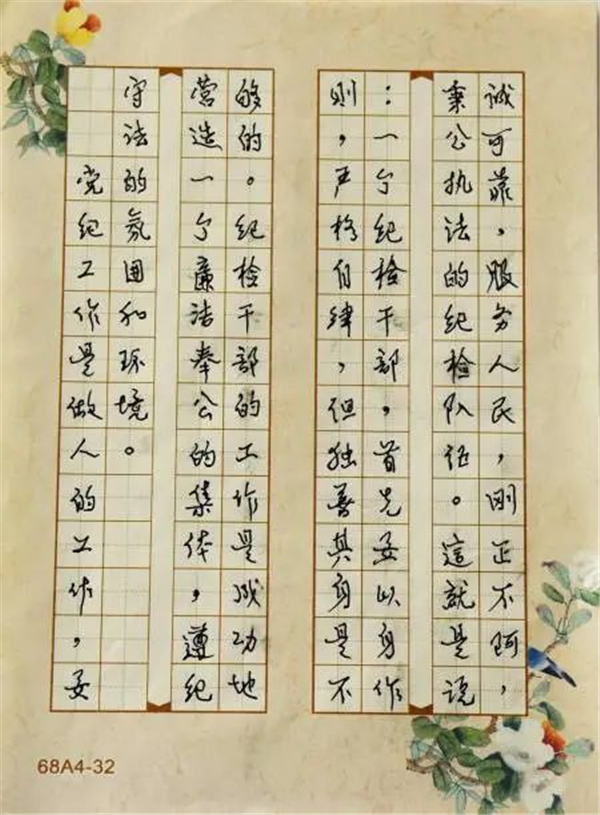 诚可靠，服务人民，刚正不阿，
秉公执法的纪检队伍。這就是说
：一个纪检干部，首先要以身作
则，严格自律，但独善其身是不
够的。纪检干部的工作是成功地
营造一个廉洁奉公的集体，遵纪
守法的氛围和环境。
党纪工作是做人的工作，要
68A4-32